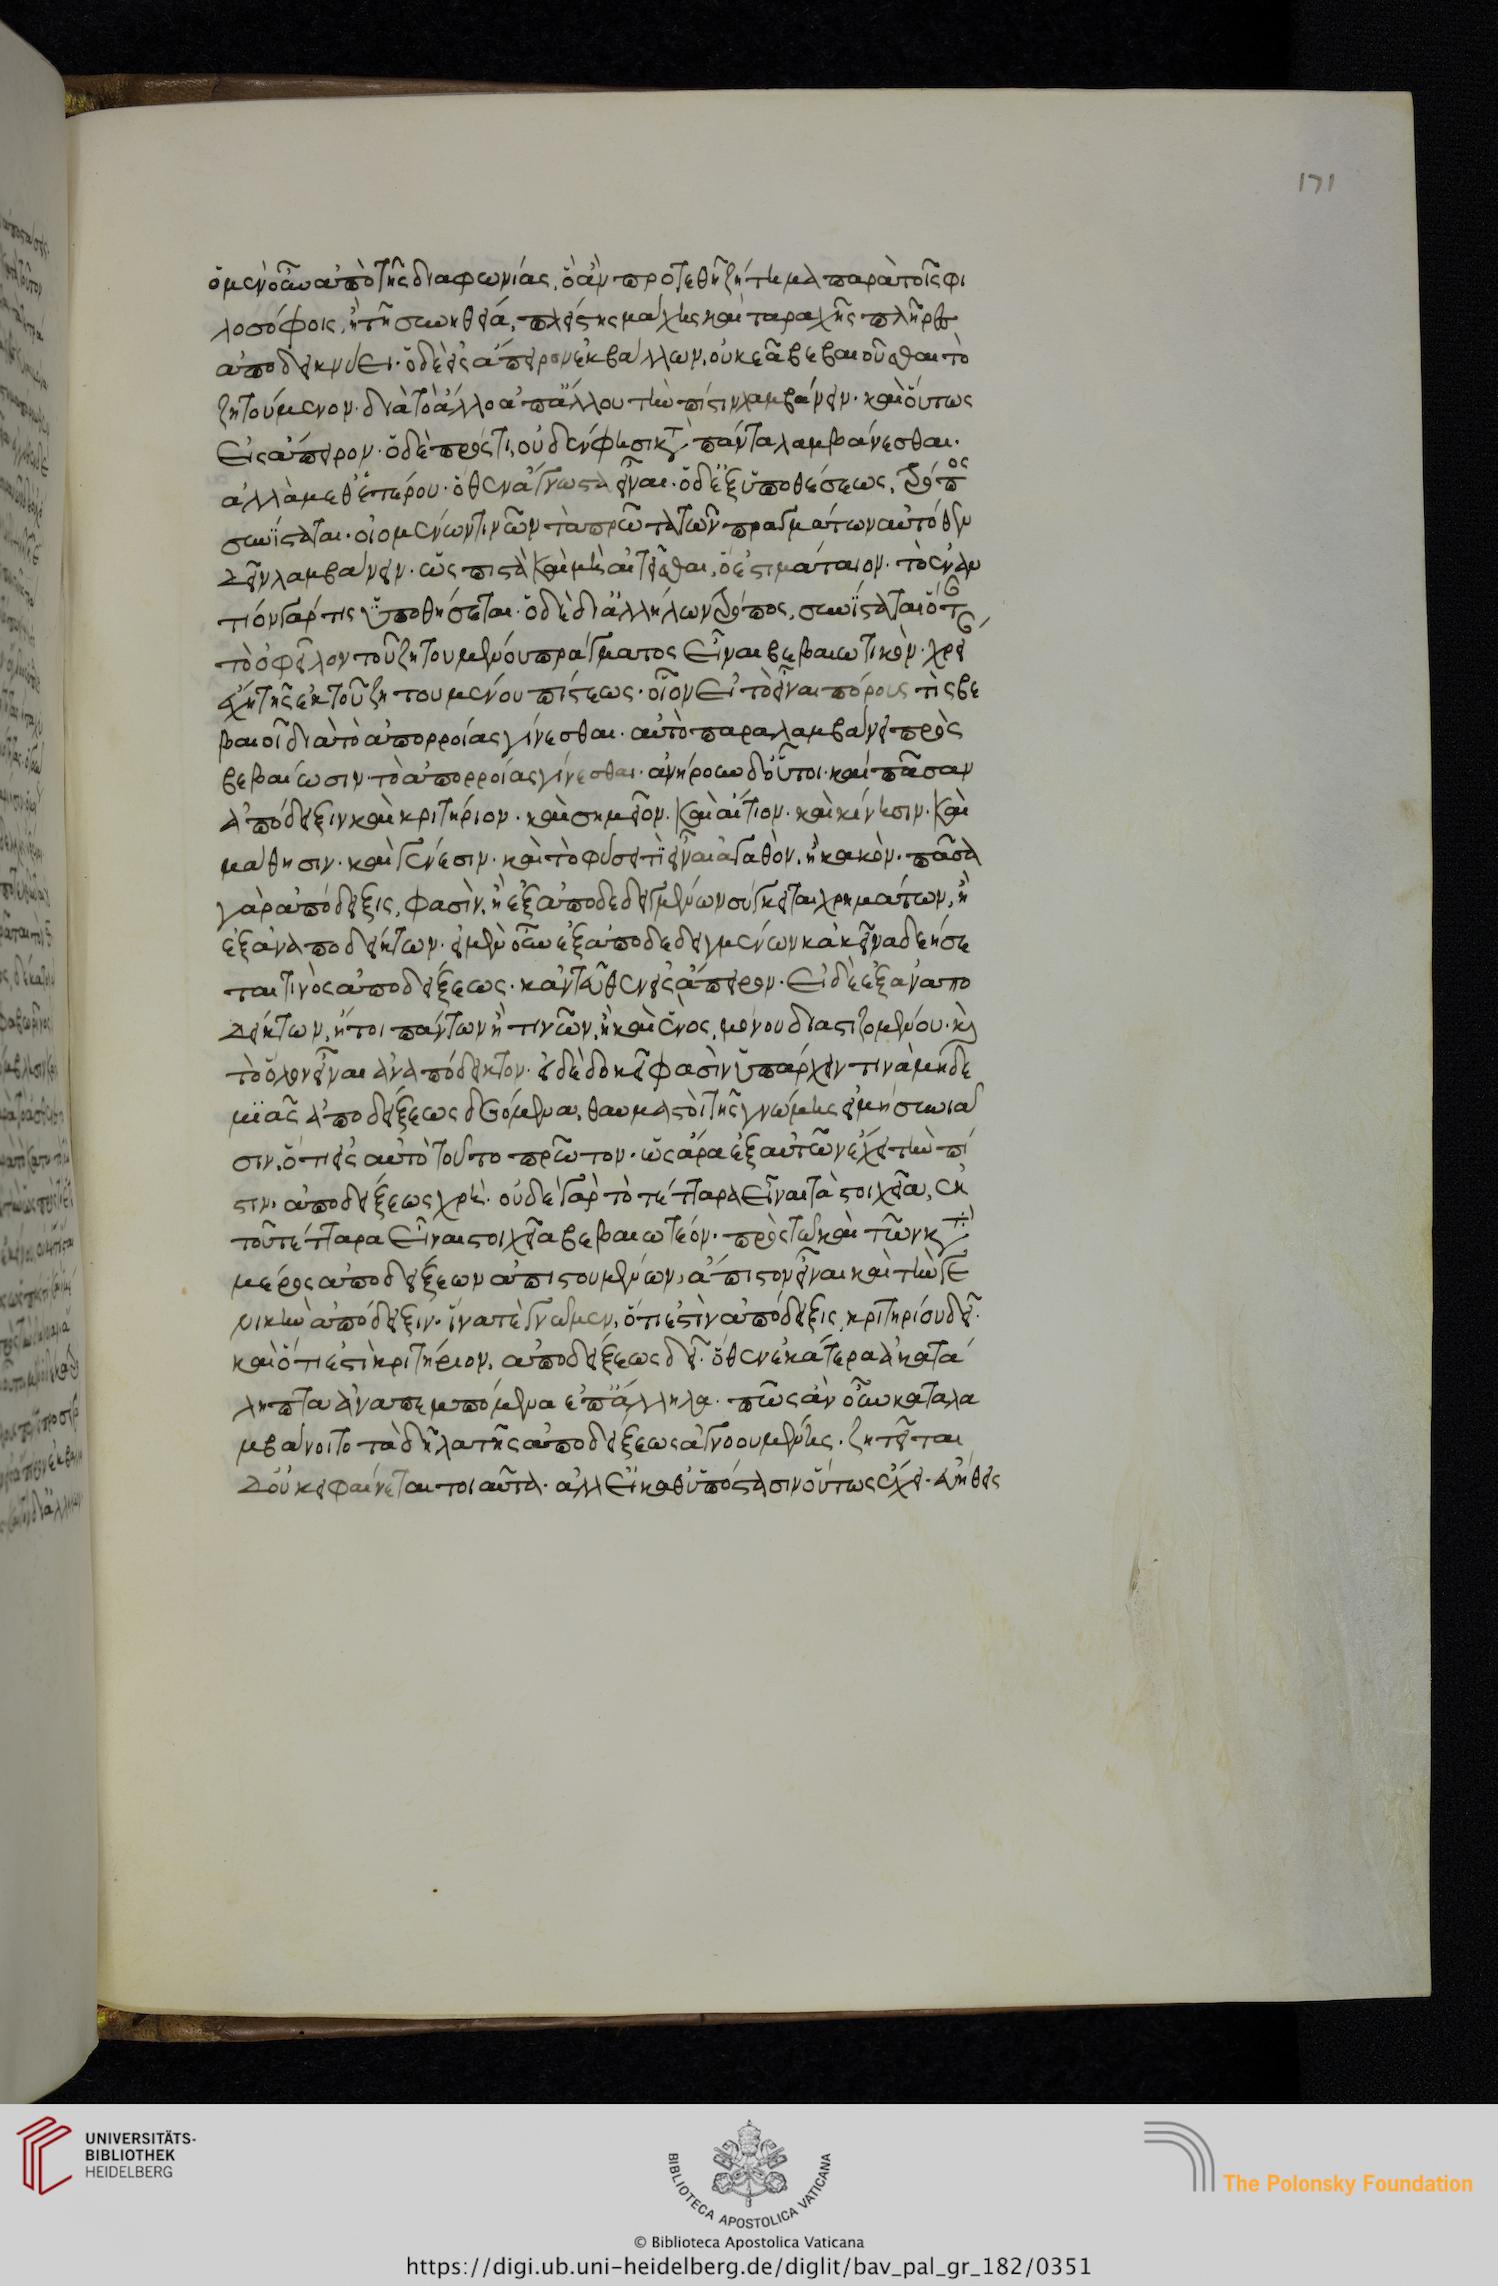 171
ὁ μὲν οὖν ἀπὸ τῆς διαφωνίας, ὃ ἂν προτεθῇ ζήτημα παρὰ τοῖς φι
λοσόφοις, ἢ τῇ συνηθείᾳ, πλείστης μάχης καὶ ταραχῆς πλῆρες
ἀποδεικνύει· ὁ δὲ εἰς ἄπειρον ἐκβάλλων, οὐκ ἐᾷ βεβαιοῦσθαι τὸ
ζητούμενον· διὰ τὸ ἄλλο ἀπ' ἄλλου τὴν πίστιν λαμβάνειν· καὶ οὕτως
εἰς ἄπειρον· ὁ δὲ πρός τι, οὐδέν φησι κατ πάντα λαμβάνεσθαι·
ἀλλὰ μεθ' ἑτέρου· ὅθεν ἄγνωστα εἶναι· ὁ δ' ἐξ ὑποθέσεως, τρόπος
συνίσταται· οἰομένων τινῶν τὰ πρῶτα τῶν πραγμάτων αὐτόθεν
δεῖν λαμβάνειν· ὡς πιστὰ καὶ μὴ αἰτεῖσθαι, ὅ ἐστι μάταιον· τὸ ἐναν
τίον γάρ τις ὑποθήσεται· ὁ δὲ δι' ἀλλήλων τρόπος, συνίσταται ὅτ
τὸ ὀφεῖλον τοῦ ζητουμένου πράγματος εἶναι βεβαιωτικὸν· χρεί
χῃ τῆς ἐκ τοῦ ζητουμένου πίστεως· οἷον εἰ τὸ εἶναι πόρους τὶς βε
βαιοῖ διὰ τὸ ἀπορροίας γίνεσθαι· αὐτὸ παραλαμβάνει πρὸς
βεβαίωσιν· τὸ ἀπορροίας γίνεσθαι· ἀνῄρουν δ' οὗτοι· καὶ πᾶσαν
ἀπόδειξιν καὶ κριτήριον· καὶ σημεῖον· καὶ αἴτιον· καὶ κίνησιν· καὶ
μάθησιν· καὶ γένεσιν· καὶ τὸ φύσει τὶ εἶναι ἀγαθὸν, ἢ κακὸν· πᾶσα
γὰρ ἀπόδειξις, φασὶν, ἢ ἐξ ἀποδεδειγμένων σύγκειται χρημάτων, ἢ
ἐξ ἀναποδείκτων· εἰ μὲν οὖν ἐξ ἀποδεδειγμένων κἀκεῖνα δεήσε
ταί τινος ἀποδείξεως· κἀντεῦθεν εἰς ἄπειρον· εἰ δὲ ἐξ αναπο
δείκτων, ἤτοι πάντων ἢ τινῶν, ἢ καὶ ἑνὸς, μόνου διασταζομένου· καὶ
τὸ ὅλον εἶναι ἀναπόδεικτον· εἰ δὲ δοκεῖ φασὶν ὑπάρχειν τινὰ μηδε
μιᾶς ἀποδείξεως δεόμενα, θαυμαστοὶ τῆς γνώμης εἰ μὴ συνιᾶ
σιν, ὅτι εἰς αὐτὸ τοῦτο πρῶτον· ὡς ἄρα ἐξ αὐτῶν ἔχει τὴν πί
στιν· ἀποδείξεως χρή· οὐδὲ γὰρ τὸ τέτταρα εἶναι τὰ στοιχεῖα, ἐκ
τοῦ τέτταρα εἶναι στοιχεῖα βεβαιωτέον· πρὸς τῷ καὶ τῶν κατὰ
μέρος ἀποδείξεων ἀπιστουμένων, ἄπιστον εἶναι καὶ τὴν γε
νικὴν ἀπόδειξιν· ἵνα τὲ γνῶμεν, ὅτι ἐστὶν ἀπόδειξις, κριτηρίου δεῖ·
καὶ ὅτι ἐστὶ κριτήριον, ἀποδείξεως δεῖ· ὅθεν ἑκάτερα ἀκατά
ληπτα ἀναπεμπόμενα ἐπ' ἄλληλα· πῶς ἂν οὖν καταλα
μβάνοιτο τὰ δῆλα τῆς ἀποδείξεως ἀγνοουμένης· ζητεῖται
δ' οὐκ εἰ φαίνεται τοιαῦτα· ἀλλ' εἰ καθ' ὑπόστασιν οὕτως ἔχει· εὐήθεις
UNIVERSITÄTS-
BIBLIOTHEK
HEIDELBERG
BIBLIOTECA APOSTOLICA VATICANA
The Polonsky Foundation
© Biblioteca Apostolica Vaticana
https://digi.ub.uni-heidelberg.de/diglit/bav_pal_gr_182/0351